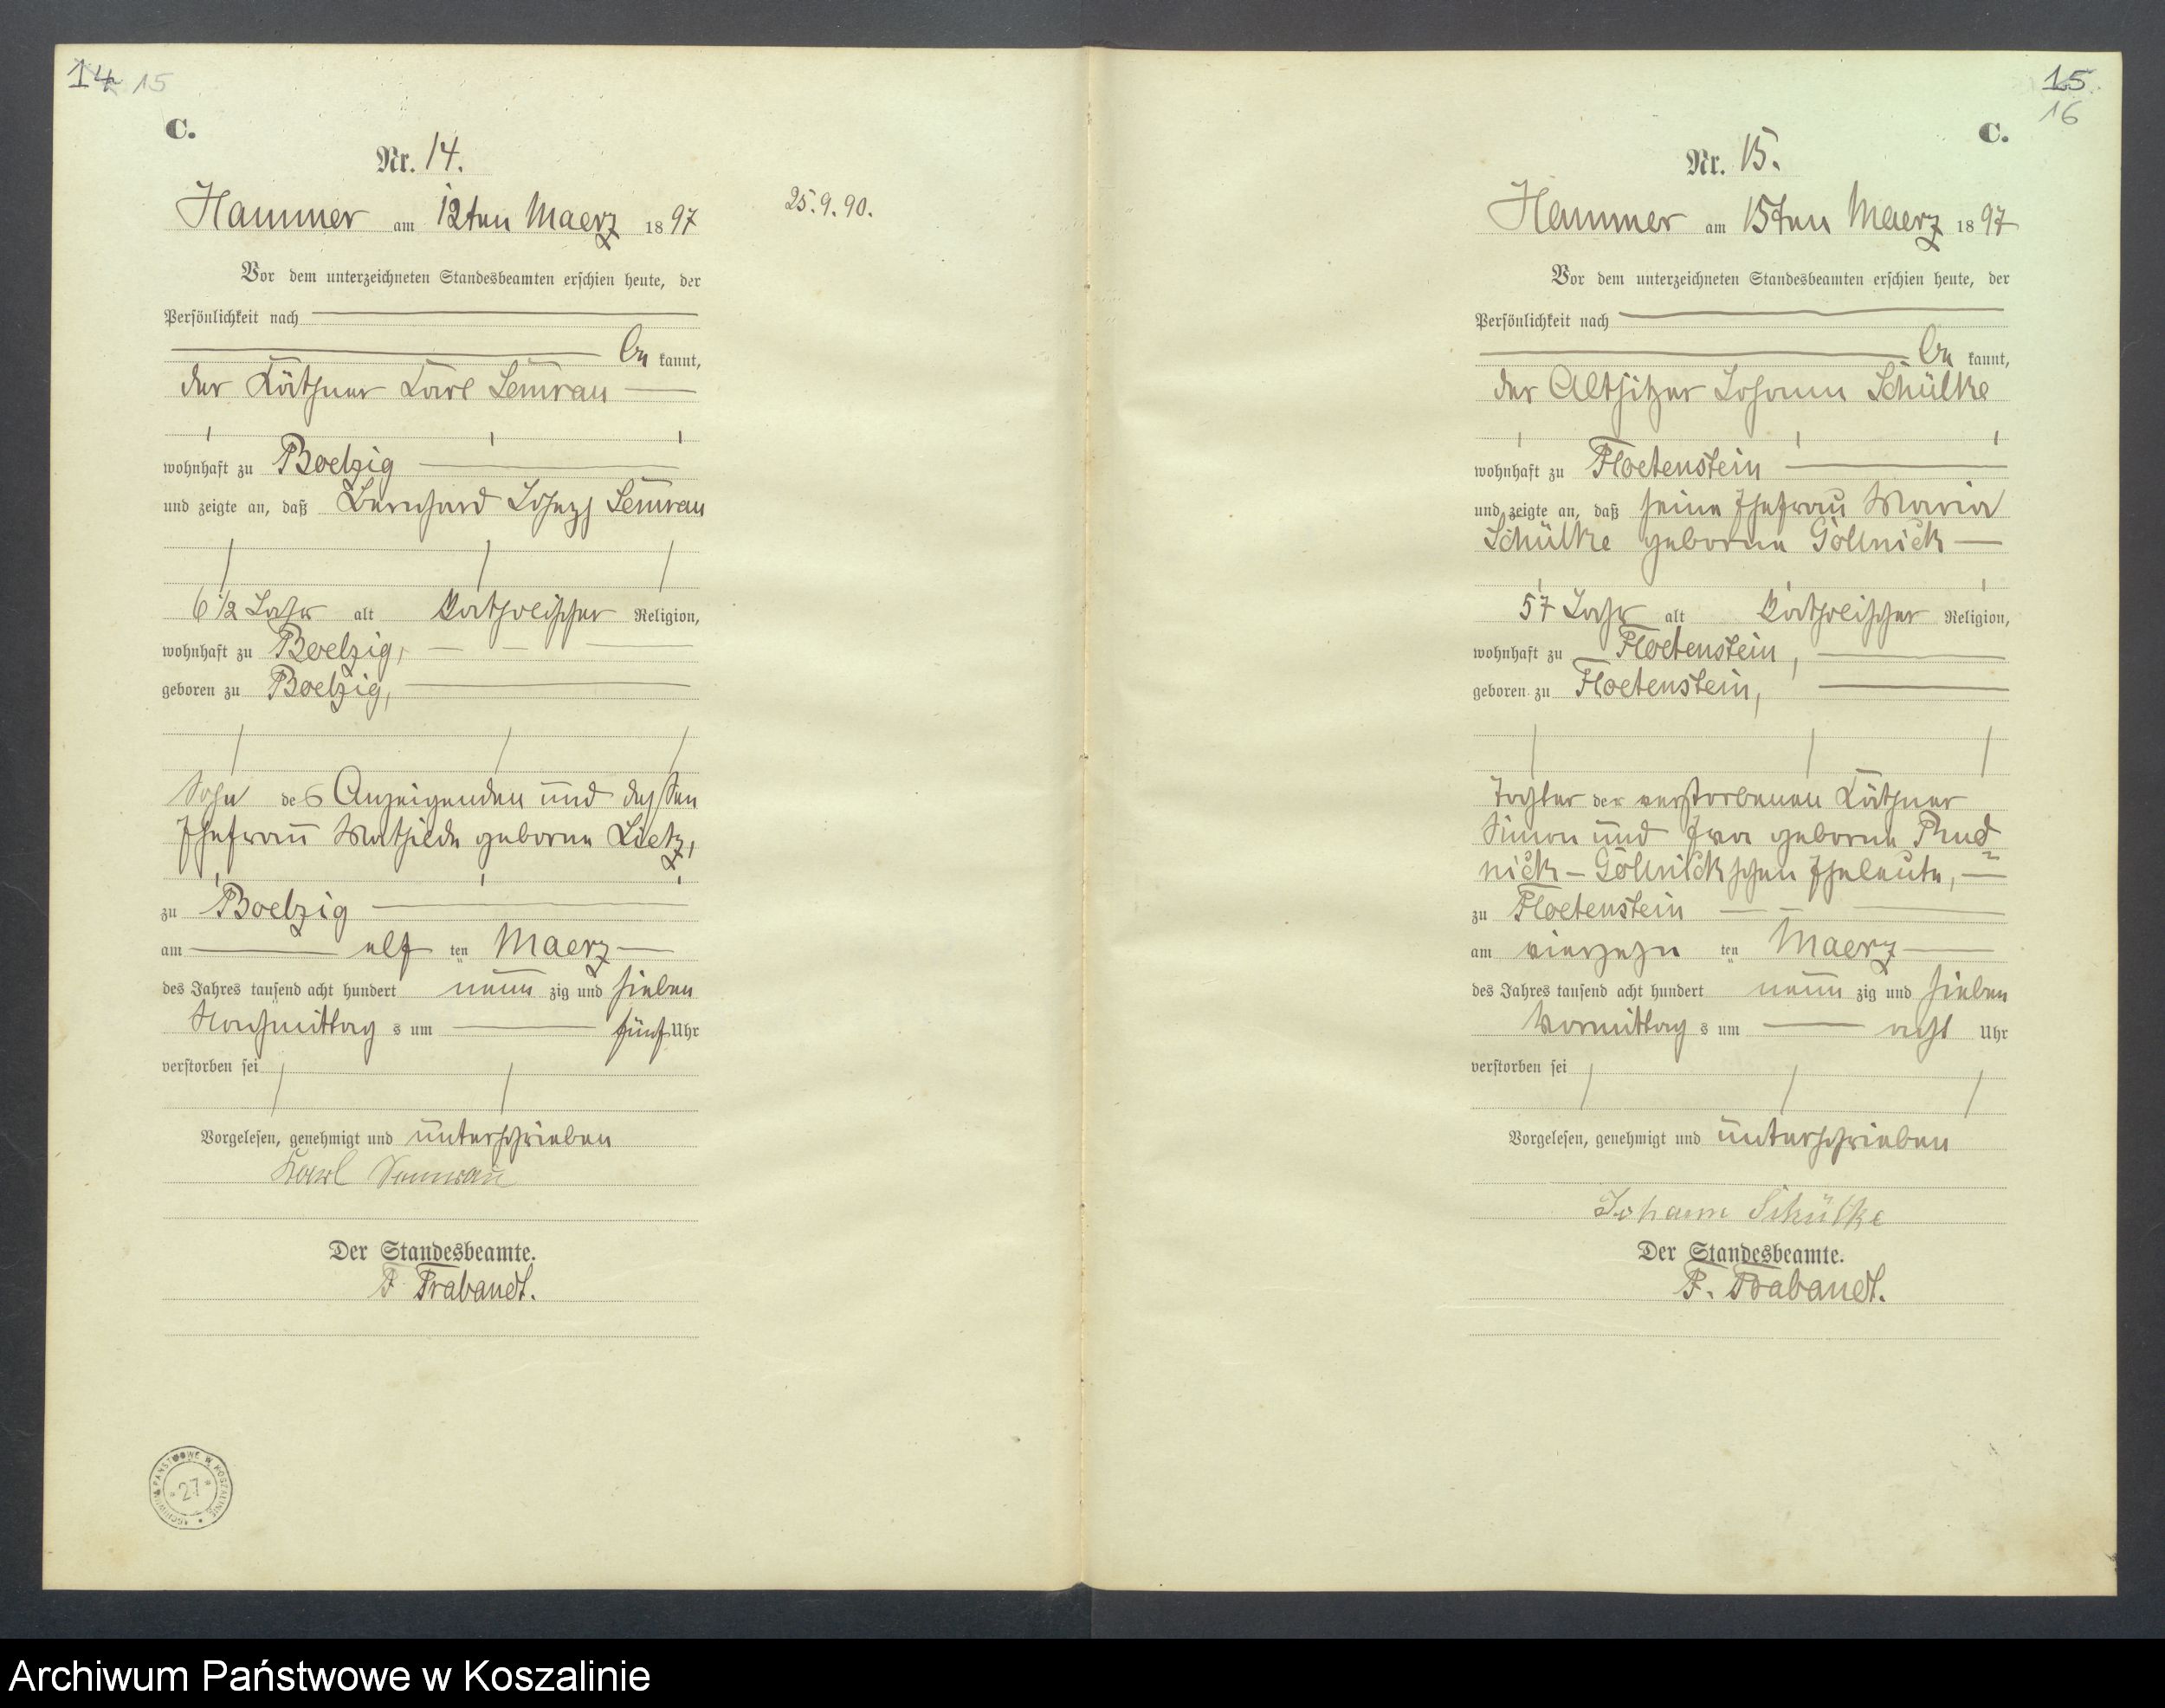 14 15
C.
Nr. 14.
Hammer am 12ten Maerz 1897
25.9.90.
Vor dem unterzeichneten Standesbeamten erschien heute, der
Persönlichkeit nach
be kannt,
der Käthner Karl Semrau
wohnhaft zu Boelzig
und zeigte an, daß Bernhard Joseph Semrau
6 1/2 Jahr alt katholischer Religion,
wohnhaft zu Boelzig,
geboren zu Boelzig,
Sohn des Anzeigenden und dessen
Ehefrau Mathilde geborne Lietz,
zu Boelzig
am elf ten Maerz
des Jahres tausend acht hundert neun zig und sieben
Nachmittag s um fünf Uhr
verstorben sei
Vorgelesen, genehmigt und unterschrieben
Karl Semrau
Der Standesbeamte.
F Brabandt.
ARCHIWUM PAŃSTWOWE W KOSZALINIE
* 27 *
15
16
C.
Nr. 15.
Hammer am 15ten Maerz 1897
Vor dem unterzeichneten Standesbeamten erschien heute, der
Persönlichkeit nach
be kannt,
der Altsitzer Johann Schülke
wohnhaft zu Floetenstein
und zeigte an, daß seine Ehefrau Maria
Schülke geborne Gollnick
57 Jahr alt katholischer Religion,
wohnhaft zu Floetenstein,
geboren zu Floetenstein,
Tochter der verstorbenen Käthner
Simon und Eva geborne Prud
nick - Gollnickschen Eheleute,
zu Floetenstein
am vierzehn ten Maerz
des Jahres tausend acht hundert neun zig und sieben
Vormittag s um acht Uhr
verstorben sei
Vorgelesen, genehmigt und unterschrieben
Johann Schülke
Der Standesbeamte.
F. Brabandt.
Archiwum Państwowe w Koszalinie